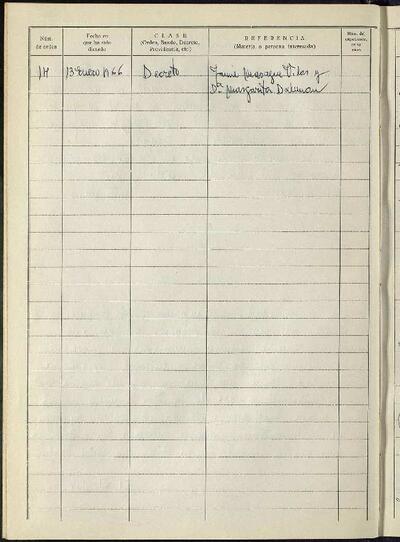 Núm. de orden
Fecha en que ha sido dictado
CLASE
(Orden, Bando, Decreto, Providencia, etc.)
REFERENCIA
(Materia o persona interesada)
Núm. del
14 13 Enero 1966 Decreto Jaime Masagué Vilas y
Dª Margarita Dalmau